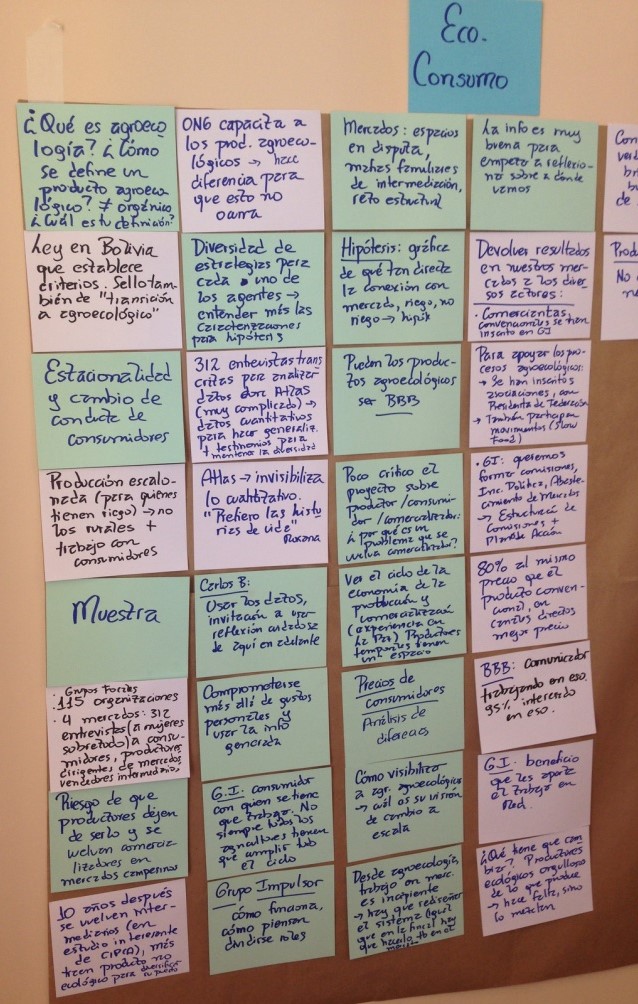 Eco.
Consumo
¿Qué es agroeco
logía? ¿Cómo
se define un
producto agroeco
lógico? ≠ orgánico
¿Cuál es tu definición?
Ley en Bolivia
que establece
criterios. Sello tam-
bién de "transición
a agroecológico"
Estacionalidad
y cambio de
conducta de
consumidores
Producción escalo-
nada (para quienes
tienen riego) → no
los rurales +
trabajo con
consumidores
Muestra
· Grupos Focales
· 115 organizaciones
· 4 mercados: 312
entrevistas (a mujeres
sobretodo) a consu-
midores, productores,
dirigentes de mercados,
vendedores intermediarios
Riesgo de que
productores dejen
de serlo y se
vuelvan comercia-
lizadores en
mercados campesinos
10 años después
se vuelven inter-
mediarios (en
estudio interesante
de CIPCA), más
traen producto no
ecológico para
ONG capacita a
los prod. agroeco-
lógicos → hace
diferencia para
que esto no
ocurra
Diversidad de
estrategias para
cada uno de
los agentes →
entender más las
caracterizaciones
para hipótesis
312 entrevistas trans
critas para analizar
datos con Atlas
(muy complicado) →
datos cuantitativos
para hacer generaliz.
+ testimonios para
mantener la diversidad
Atlas → invisibiliza
lo cuantitativo.
"Prefiero las histo
rias de vida"
Roxana
Carlos B:
Usar los datos,
invitación a usar
reflexión
de aquí en adelante
Comprometerse
más allá de gustos
personales y
usar la info
generada
G.I: consumidor
con quien se tiene
que trabajar. No
siempre todos los
agricultores tienen
que cumplir todo
el ciclo
Grupo Impulsor
cómo funciona,
cómo piensan
dividirse roles
Mercados: espacios
en disputa,
mafias familiares
de intermediación,
reto estructural
Hipótesis: gráfica
de qué tan directa
la conexión con
mercado, riego, no
riego →
Puedan los produc-
tos agroecológicos
ser BBB
Poco crítico el
proyecto sobre
productor/consumi-
dor/comercializador:
¿por qué es un
problema que se
vuelva comercializador?
Ver el ciclo de la
economía de la
producción y
comercialización
(experiencia en
La Paz) Productores
temporales tienen
un espacio
Precios de
consumidores
Análisis de
diferencias
Cómo visibilizar
a agr. agroecológica
→ cuál es su visión
de cambio a
escala
Desde agroecología,
trabajo en merc.
es incipiente
→ hay que rediseñar
el sistema (igual
que en la finca) hay
que hacerlo tb en el
La info es muy
buena para
empezar a reflexio-
nar sobre a dónde
vamos
Devolver resultados
en nuestros mer-
cados a los diver
sos actores:
· Comerciantas,
convencionales se han
inscrito en GI
Para apoyar los pro-
cesos agroecológicos:
→ Se han inscritos
asociaciones, con
Presidenta de Federación
→ También participan
movimientos (Slow
Food)
· GI: queremos
formar comisiones,
Inc. Política, Abaste-
cimiento de Mercados
→ Estructura de
Comisiones +
Plan de Acción
80% al mismo
precio que el
producto conven-
cional, en
canales directos
mejor precio
BBB: comunicador
trabajando en eso.
95% interesado
en eso.
G.I. beneficio
que les aporte
el trabajo en
Red.
¿Qué tiene que cam
biar? Productores
ecológicos orgullosos
de lo que produce
→ hace feliz, sino
lo mezclan
Con
ver
br
de
Prod
No
ne